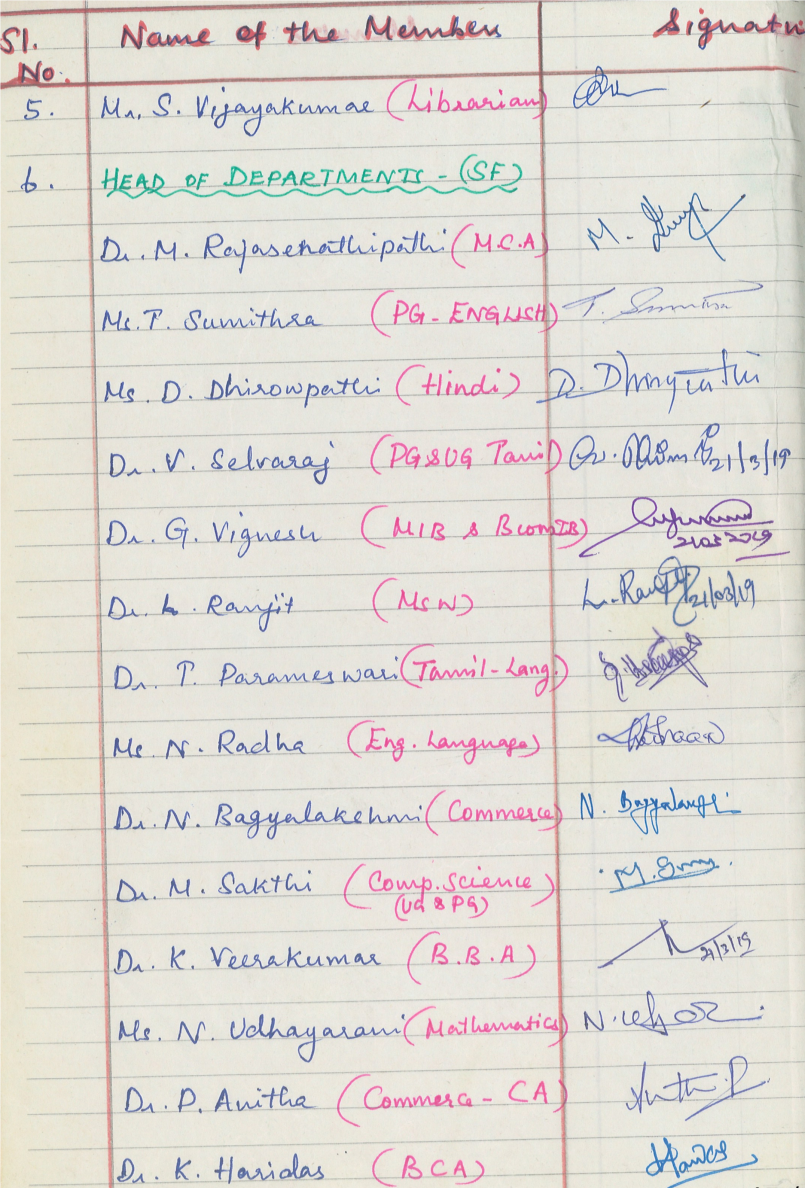 Sl. No. Name of the Members Signatu
5. Mr. S. Vijayakumar (Librarian)
6. HEAD OF DEPARTMENTS - (SF)
Dr. M. Rajasenathipathi (M.C.A) M.
Ms. T. Sumithra (PG - ENGLISH) T. Sumithra
Ms. D. Dhirowpathi (Hindi) D.
Dr. V. Selvaraj (PG & UG Tamil) 21/3/19
Dr. G. Vignesh (MIB & BcomIB) 21032019
Dr. L. Ranjit (MSW) L. 21/03/19
Dr. T. Parameswari (Tamil-Lang.)
Ms. N. Radha (Eng. Language)
Dr. N. Bagyalakshmi (Commerce) N.
Dr. M. Sakthi (Comp. Science) M.
(UG & PG)
Dr. K. Veerakumar (B.B.A) 21/3/19
Ms. N. Udhayarani (Mathematics) N.
Dr. P. Anitha (Commerce - CA)
Dr. K. Haridas (BCA)